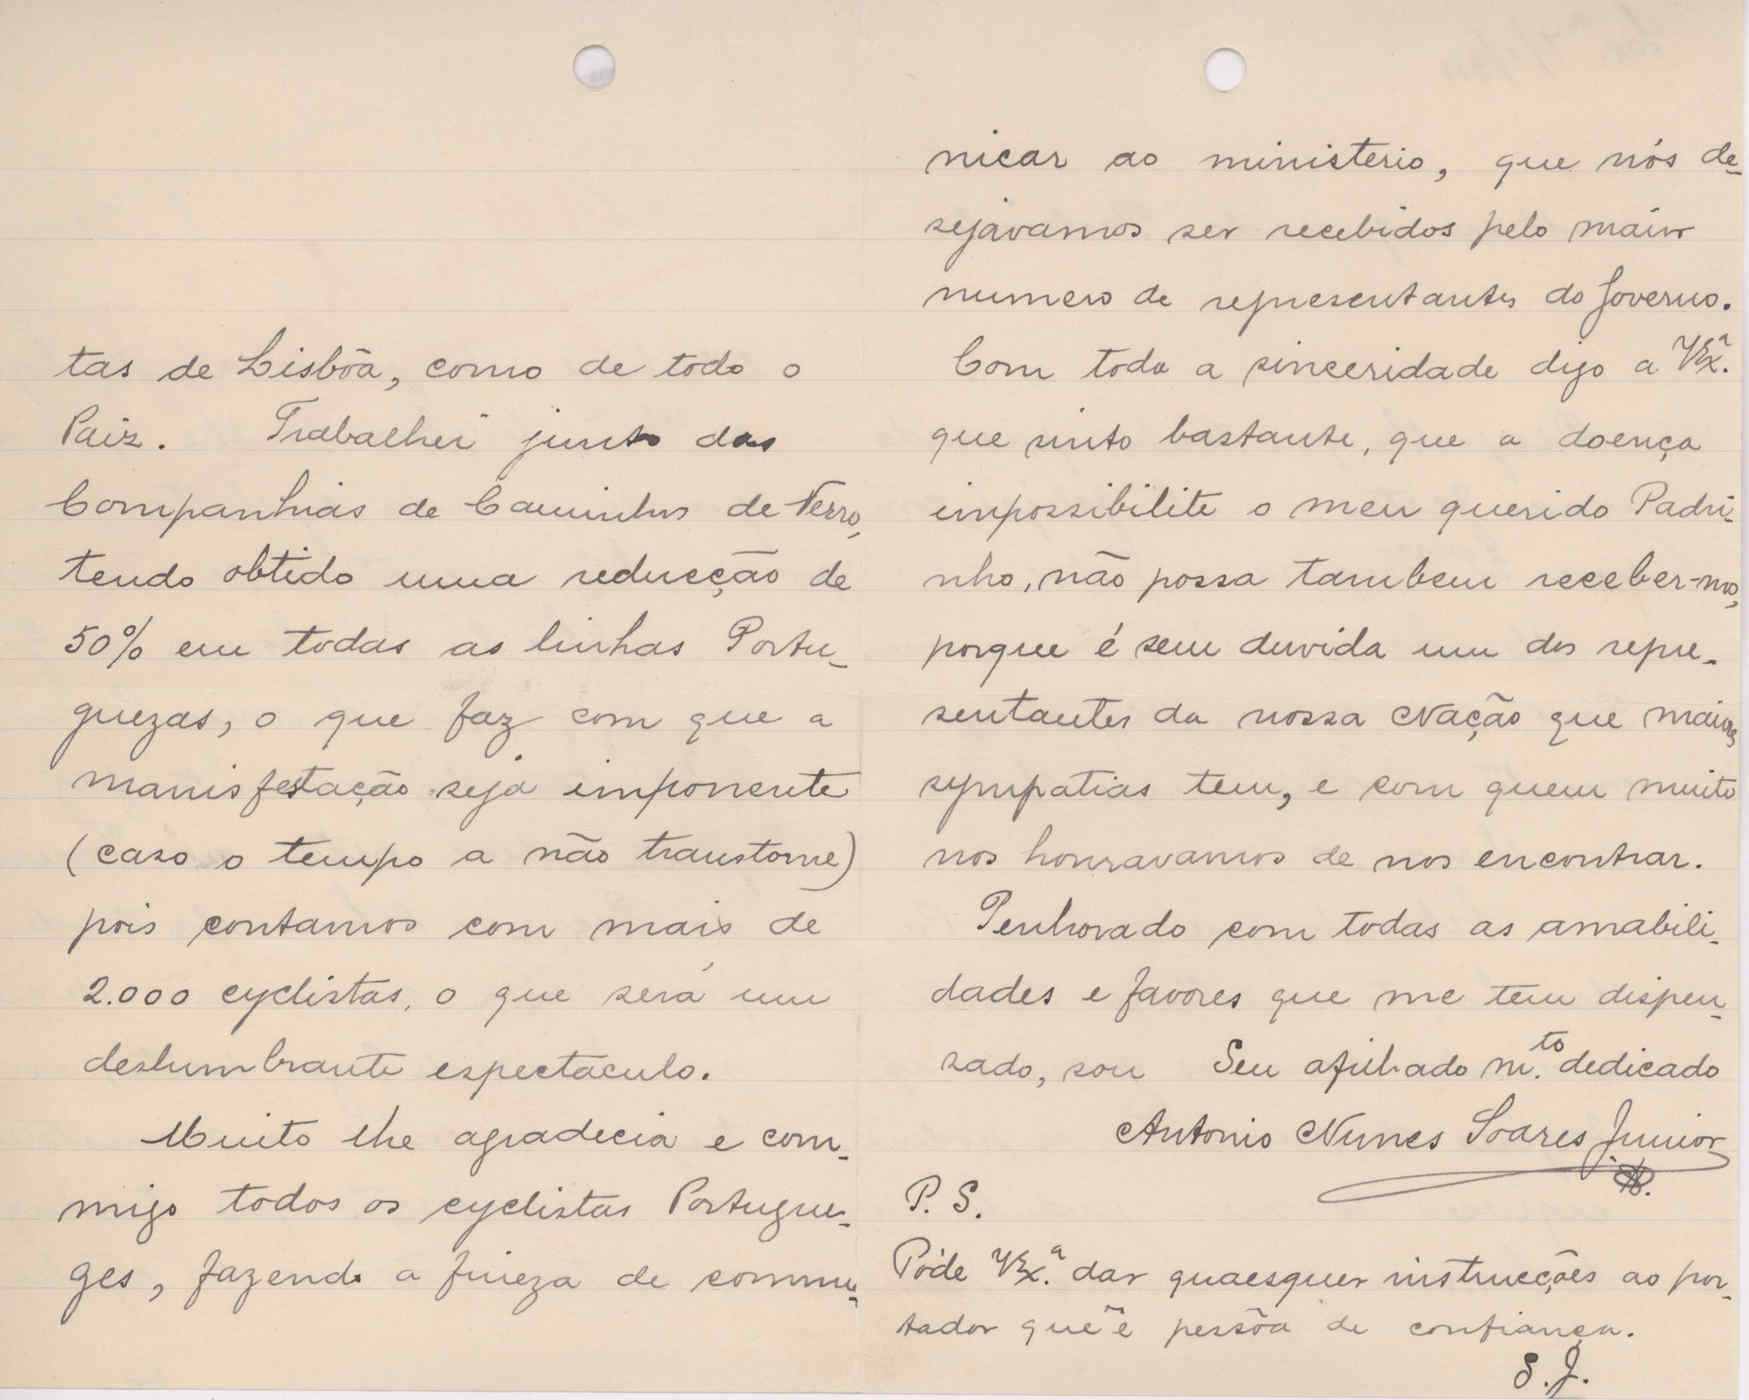 tas de Lisbôa, como de todo o
Paiz. Trabalhei junto das
Companhias de Caminhos de Ferro,
tendo obtido uma reducção de
50% em todas as linhas Portu-
guezas, o que faz com que a
manisfestação seja imponente
(caso o tempo a não transtorne)
pois contamos com mais de
2.000 cyclistas, o que será um
deslumbrante espectaculo.
Muito lhe agradecia e com-
migo todos os cyclistas Portugue-
zes, fazendo a fineza de commu-
nicar ao ministerio, que nós de-
sejávamos ser recebidos pelo maior
numero de representantes do Governo.
Com toda a sinceridade digo a VEx.ª
que sinto bastante, que a doença
impossibilite o meu querido Padri-
nho, não possa tambem receber-nos,
porque é sem duvida um dos repre-
sentantes da nossa Nação que maiores
sympatias tem, e com quem muito
nos honravamos de nos encontrar.
Penhorado com todas as amabili-
dades e favores que me tem dispen-
sado, sou Seu afilhado m.to dedicado
Antonio Nunes Soares Junior
P. S.
Póde VEx.ª dar quaesquer instrucções ao por-
tador que é pessôa de confiança.
S. J.